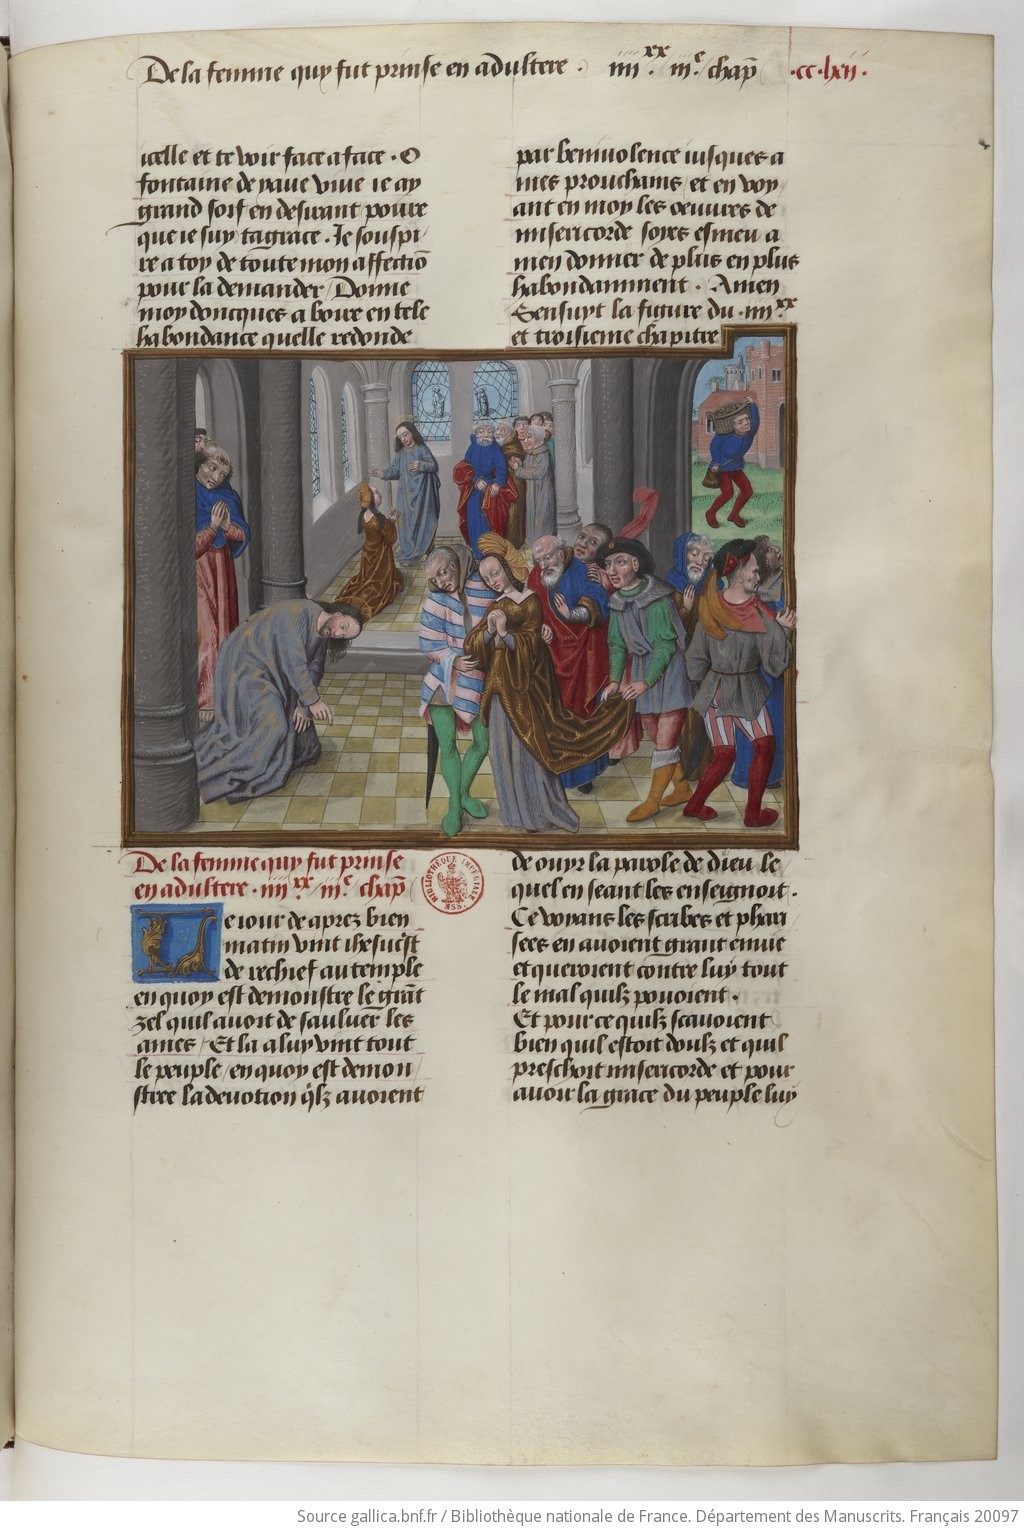 De la femme quy fut prinse en adultere . iiii.xx iii.e chap̄ .cc.lxii.
icelle et te voir face a face . O
fontaine de yaue viue ie ay
grand soif en desirant pource
que ie suy ta grace . Je souspi
re a toy de toute mon affectiō
pour la demander / Donne
moy doncques a boire en tele
habondance quelle redonde
par beniuolence iusques a
mes prouchains / et en voy
ant en moy les oeuures de
misericorde soyes esmeu a
men donner de plus en plus
habondamment . Amen
Sensuyt la figure du . iiii.xx
et troisieme chapitre
De la femme quy fut prinse
en adultere . iiii.xx iii.e chap̄
Le iour de aprez bien
matin vint ihesucr̄st
de rechief au temple
en quoy est demonstre le grāt
zel quil auoit de sauluer les
ames / Et la a luy vint tout
le peuple / en quoy est demon
stree la deuotion q̄lz auoient
de ouyr la parole de dieu le
quel en seant les enseignoit .
Ce voyans les scribes et phari
sees en auoient grant enuie
et queroient contre luy tout
le mal quilz pouoient .
Et pour ce quilz scauoient
bien quil estoit doulz et quil
preschoit misericorde et pour
auoir la grace du peuple luy
BIBLIOTHÈQUE IMPÉRIALE
MSS.
Source gallica.bnf.fr / Bibliothèque nationale de France. Département des Manuscrits. Français 20097